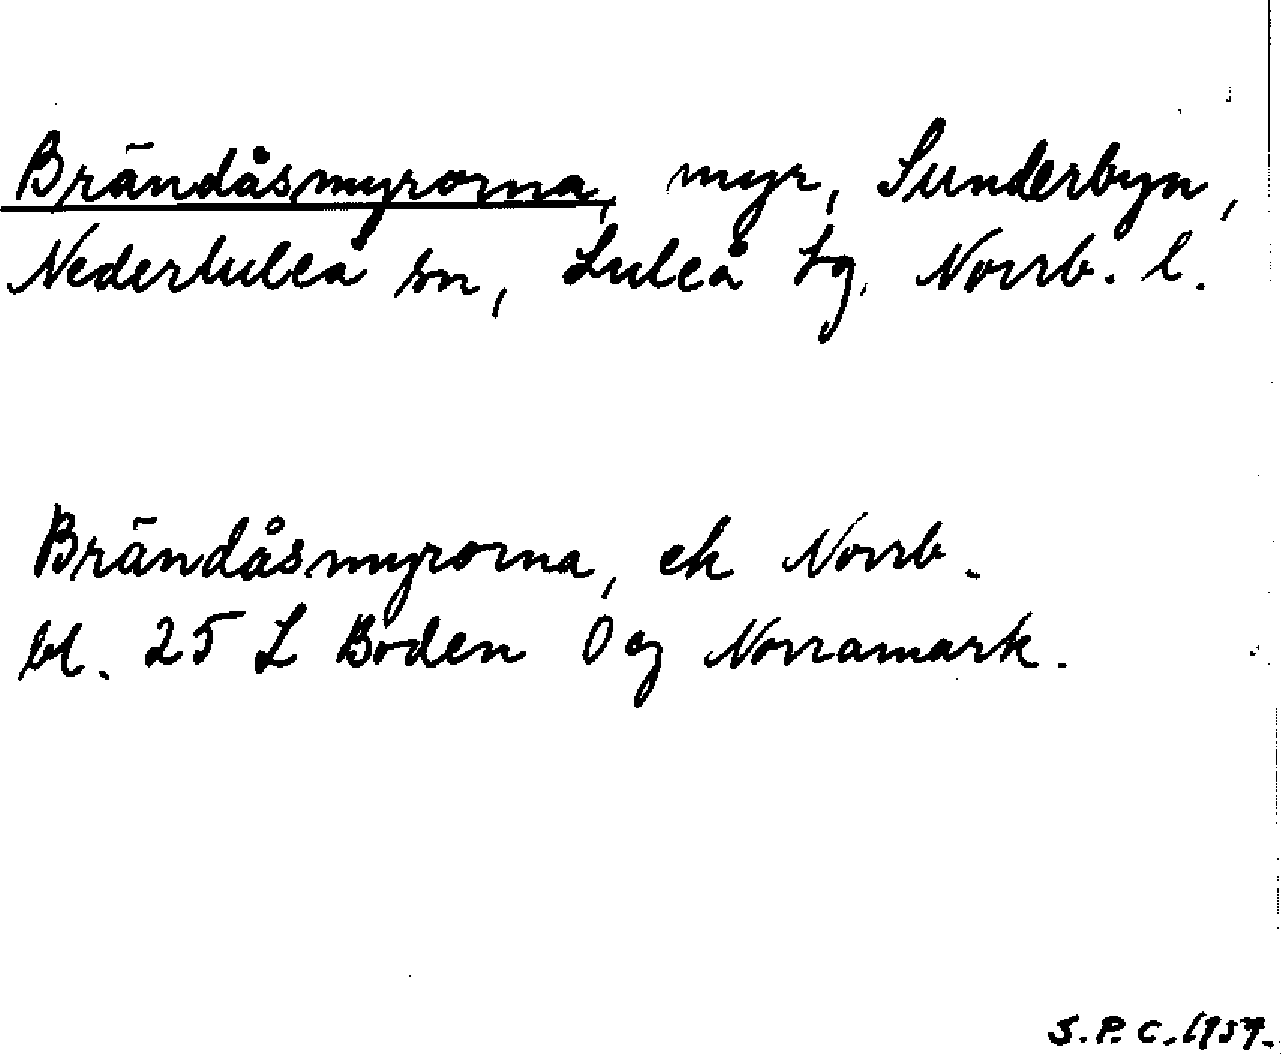 Brändåsmyrorna, myr, Sunderbyn,
Nederluleå sn, Luleå tg, Norrb. l.
Brändåsmyrorna, ek Norrb.
bl. 25 L Boden Ö eg Norramark.
S.P.C. 1937.